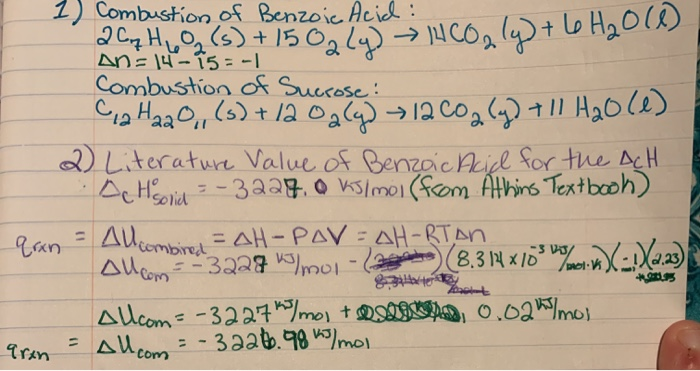 1) Combustion of Benzoic Acid :
2C₇H₆O₂(s) + 15O₂(g) → 14CO₂(g) + 6H₂O(l)
Δn = 14 - 15 = -1
Combustion of Sucrose :
C₁₂H₂₂O₁₁(s) + 12O₂(g) → 12CO₂(g) + 11H₂O(l)
2) Literature Value of Benzoic Acid for the ΔcH
ΔcH°solid = -3227.0 KJ/mol (from Athins Textbook)
qrxn = ΔUcombined = ΔH - PΔV = ΔH - RTΔn
ΔUcom = -3227 KJ/mol - (8.314 x 10⁻³ KJ/mol·K)(-1)(2.23)
ΔUcom = -3227 KJ/mol + 0.02 KJ/mol
qrxn = ΔUcom = -3226.98 KJ/mol